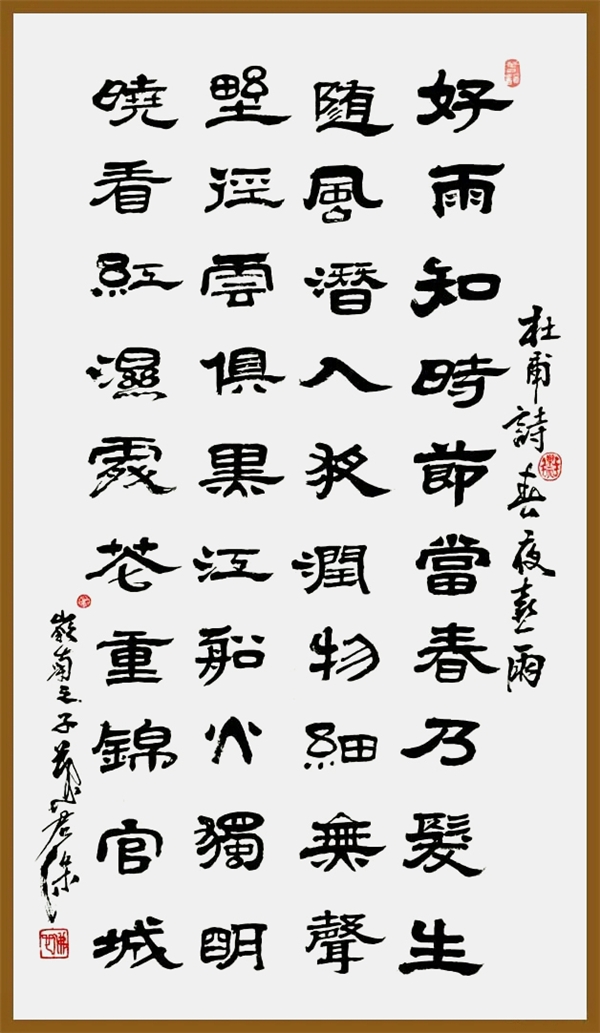 杜甫詩春夜喜雨
好雨知時節當春乃髮生
随風潛入夜潤物細無聲
野徑雲俱黑江船火獨明
曉看紅濕處花重錦官城
嶺南之子